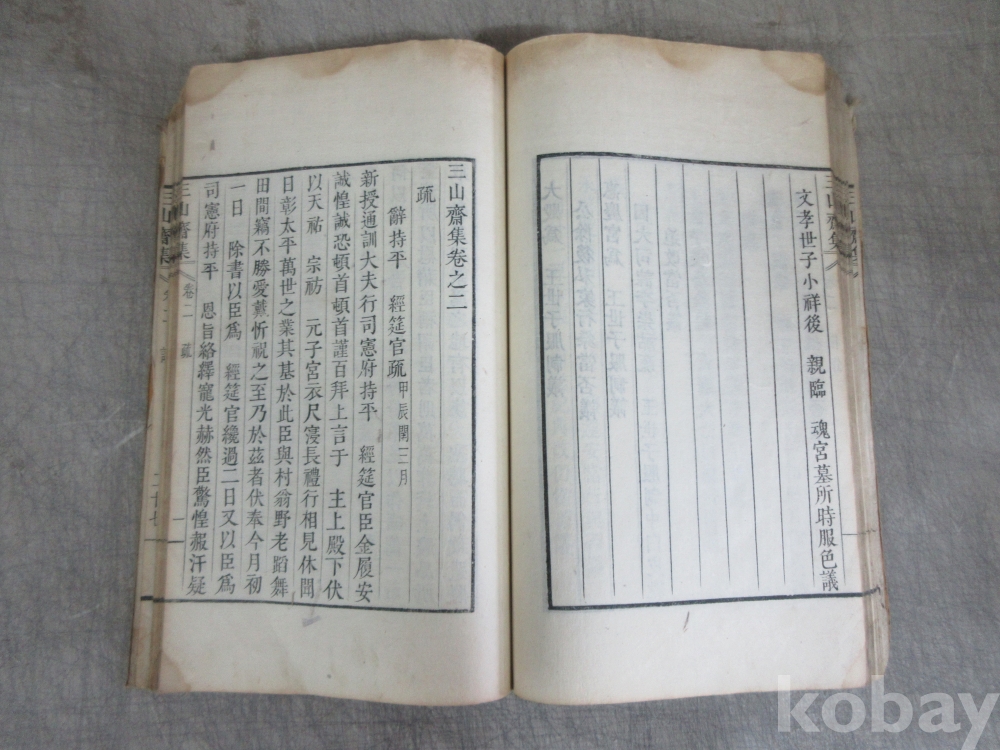 文孝世子小祥後 親臨 魂宮墓所時服色議
三山齋集
三山齋集卷之二
疏
辭持平 經筵官疏 甲辰閏三月
新授通訓大夫行司憲府持平 經筵官臣金履安
誠惶誠恐頓首頓首謹百拜上言于 主上殿下伏
以天祐 宗祊 元子宮衣尺寖長禮行相見休聞
目彰太平萬世之業其基於此臣與村翁野老蹈舞
田間竊不勝愛戴忻祝之至乃於玆者伏奉今月初
一日 除書以臣爲 經筵官纔過二日又以臣爲
司憲府持平 恩旨絡繹寵光赫然臣驚惶赧汗疑
三山齋集 卷二 疏 一
三山齋集
kobay